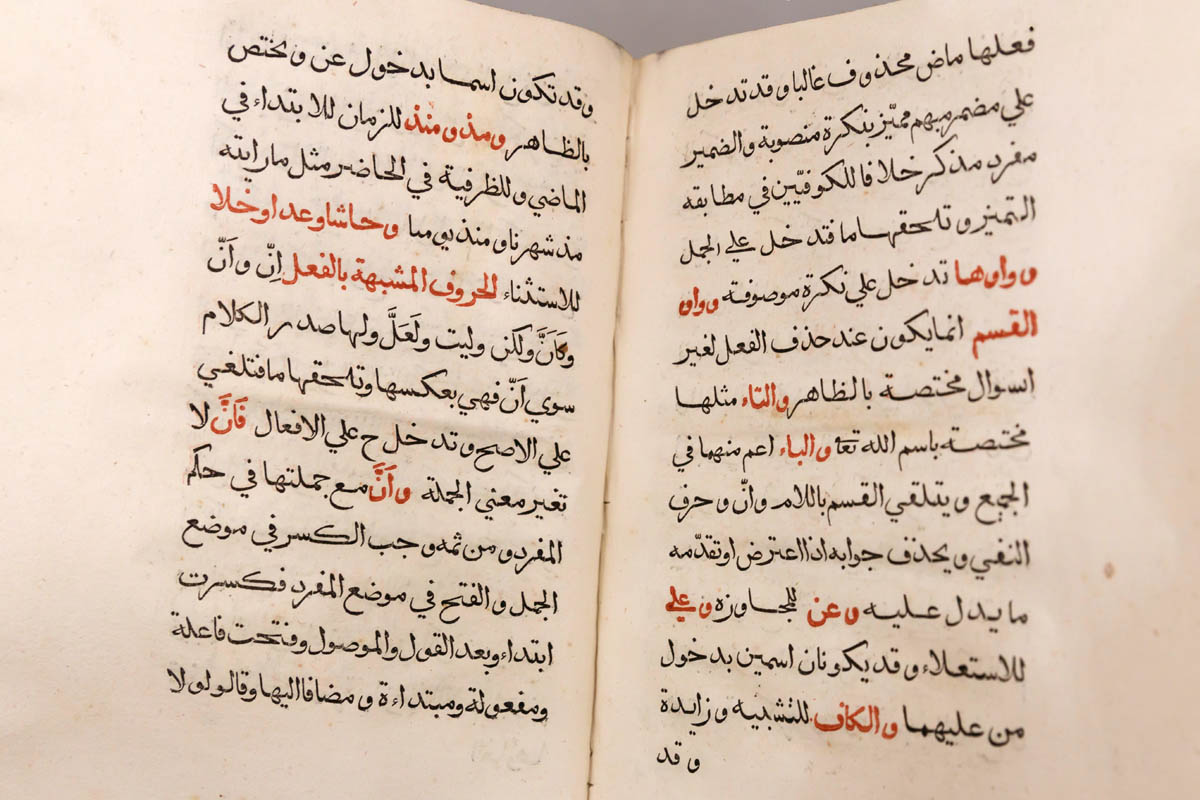 فعلها ماض محذوف غالبا وقد تدخل
علي مضمر مبهم مميّز بنكرة منصوبة والضمير
مفرد مذكر خلافا للكوفيّين في مطابقه
التميز وتلحقها ما فتدخل علي الجمل
وواوها تدخل علي نكرة موصوفة وواو
القسم انما يكون عند حذف الفعل لغير
السوال مختصة بالظاهر والتاء مثلها
مختصة باسم الله تعا والباء اعم منهما في
الجمع ويتلقي القسم باللام وانّ وحرف
النفي ويحذف جوابه اذا اعترض او تقدّمه
ما يدل عليه وعن للمجاوزه وعلي
للاستعلاء وقد يكونان اسمين بدخول
من عليهما والكاف للتشبيه وزايدة
وقد
وقد تكون اسما بدخول عن ويختص
بالظاهر ومذ ومنذ للزمان للابتداء في
الماضي وللظرفية في الحاضر مثل ما رايته
مذ شهرنا ومنذ يومنا وحاشا وعدا وخلا
للاستثناء الحروف المشبهة بالفعل اِنّ واَنّ
وكَاَنَّ ولكن وليت ولَعَلَّ ولها صدر الكلام
سوي اَنّ فهي بعكسها وتلحقها ما فتلغي
علي الاصح وتدخل ح علي الافعال فَاَنَّ لا
تغير معني الجملة واَنَّ مع جملتها في حكم
المفرد ومن ثمه وجب الكسر في موضع
الجمل والفتح في موضع المفرد فكسرت
ابتداء وبعد القول والموصول وفتحت فاعلة
ومفعولة ومبتداءة ومضافا اليها وقالو لولا